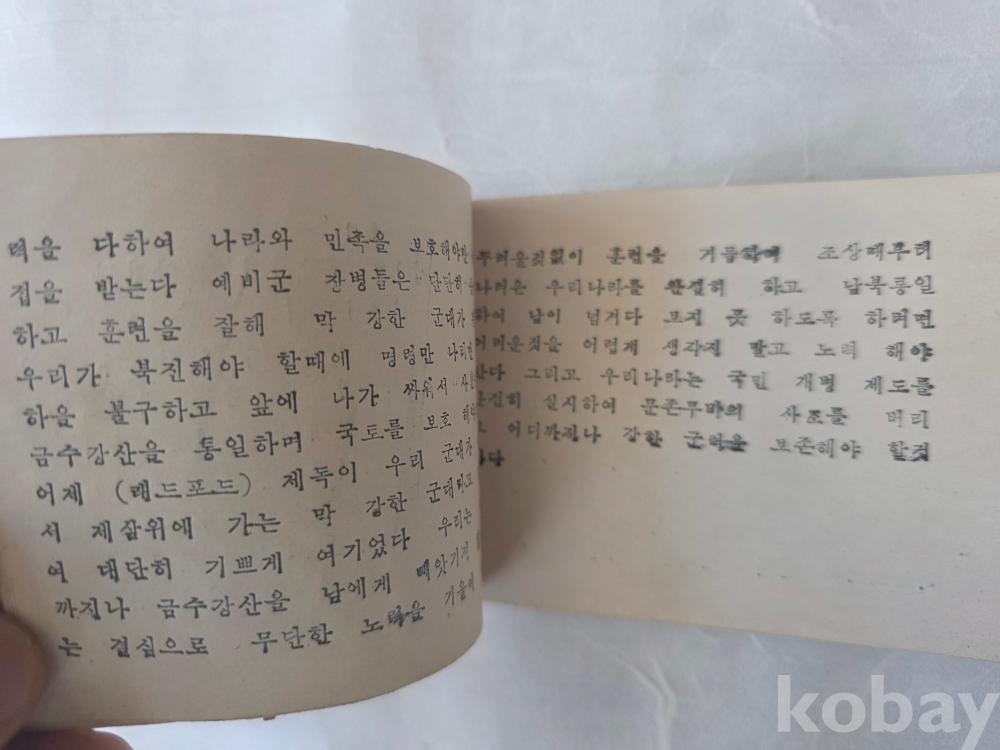 력을 다하여 나라와 민족을 보호해야만
접을 받는다 예비군 잔병들은 단단히
하고 훈련을 잘해 막 강한 군대가
우리가 북진해야 할때에 명령만 나리면
하을 불구하고 앞에 나가 싸워서
금수강산을 통일하며 국토를 보호
어제 (래드포드) 제독이 우리 군대가
서 제삼위에 가는 막 강한 군대라고
여 대단히 기쁘게 여기었다 우리는
까지나 금수강산을 남에게 빼앗기지
는 결심으로 무단한 노력을 기울여
두려울것없이 훈련을 거듭하여 조상때부터
나려온 우리나라를 완결히 하고 남북통일
하여 남이 넘겨다 보지 못 하도록 하려면
어려운것을 어렵게 생각지 말고 노력 해야
한다 그리고 우리나라는 국민 개병 제도를
실시하여 문존무비의 사조를 버리
고 어디까지나 강한 군하을 보존해야 할것
이다
kobay